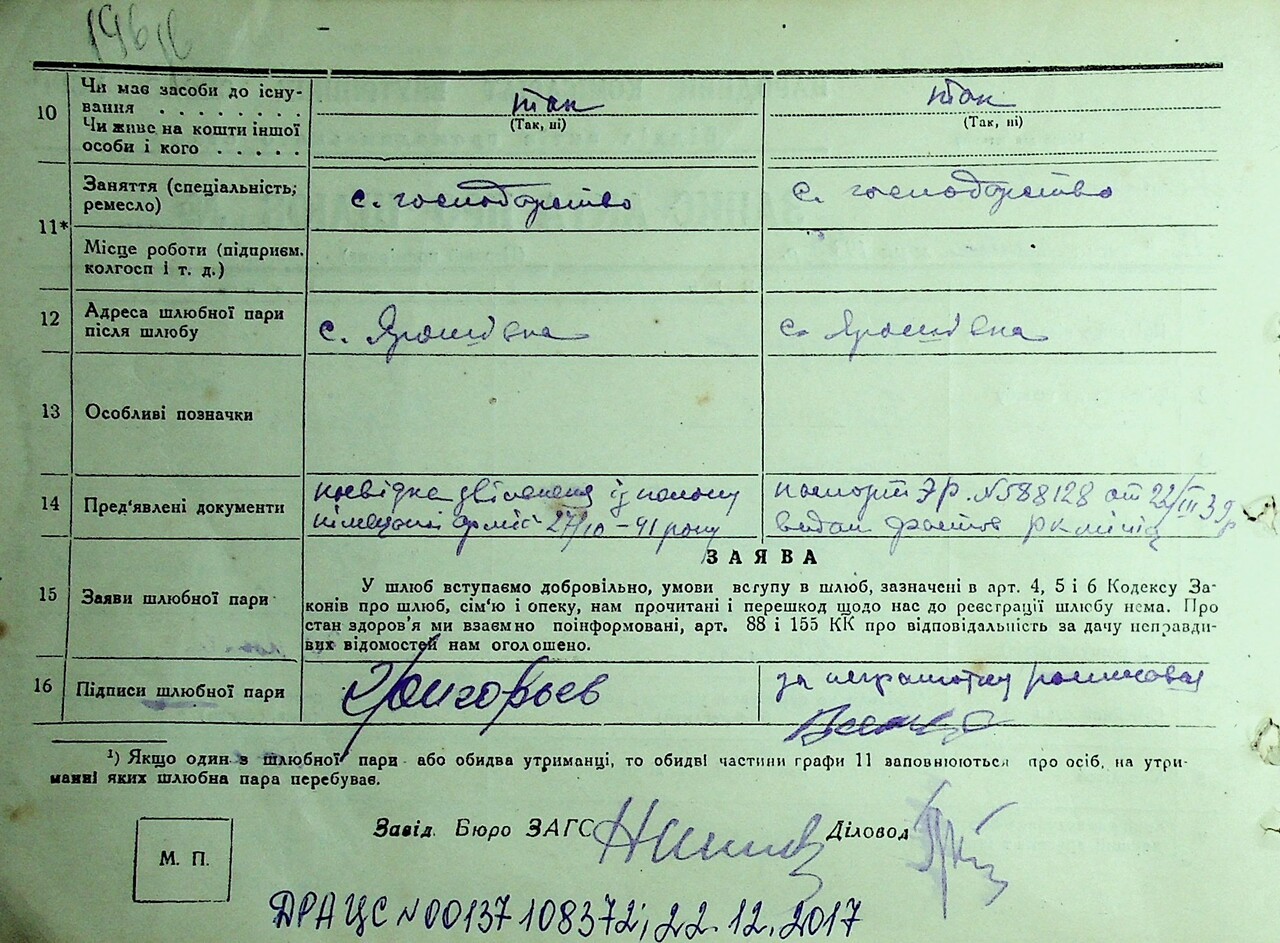 10 Чи має засоби до існу-
вання . . . . . . . . так так
(Так, ні) (Так, ні)
Чи живе на кошти іншої
особи і кого . . . . .
11* Заняття (спеціальність; с. господарство с. господарство
ремесло)
Місце роботи (підприєм.
колгосп і т. д.)
12 Адреса шлюбної пари с. Ярошівка с. Ярошівка
після шлюбу
13 Особливі позначки
14 Пред'явлені документи посвідка звільнення із полону паспорт ЭР. №588128 от 22/III 39р
німецької армії 27/10-41 року видан РК міліц
ЗАЯВА
15 Заяви шлюбної пари У шлюб вступаємо добровільно, умови вступу в шлюб, зазначені в арт. 4, 5 і 6 Кодексу За-
конів про шлюб, сім'ю і опеку, нам прочитані і перешкод щодо нас до реєстрації шлюбу нема. Про
стан здоров'я ми взаємно поінформовані, арт. 88 і 155 КК про відповідальність за дачу неправди-
вих відомостей нам оголошено.
16 Підписи шлюбної пари Григорьев за неграмотну
¹) Якщо один з шлюбної пари або обидва утриманці, то обидві частини графи 11 заповнюються про осіб, на утри-
манні яких шлюбна пара перебуває.
Завід. Бюро ЗАГС Діловод
М. П.
ДРАЦС №00137108372; 22.12.2017